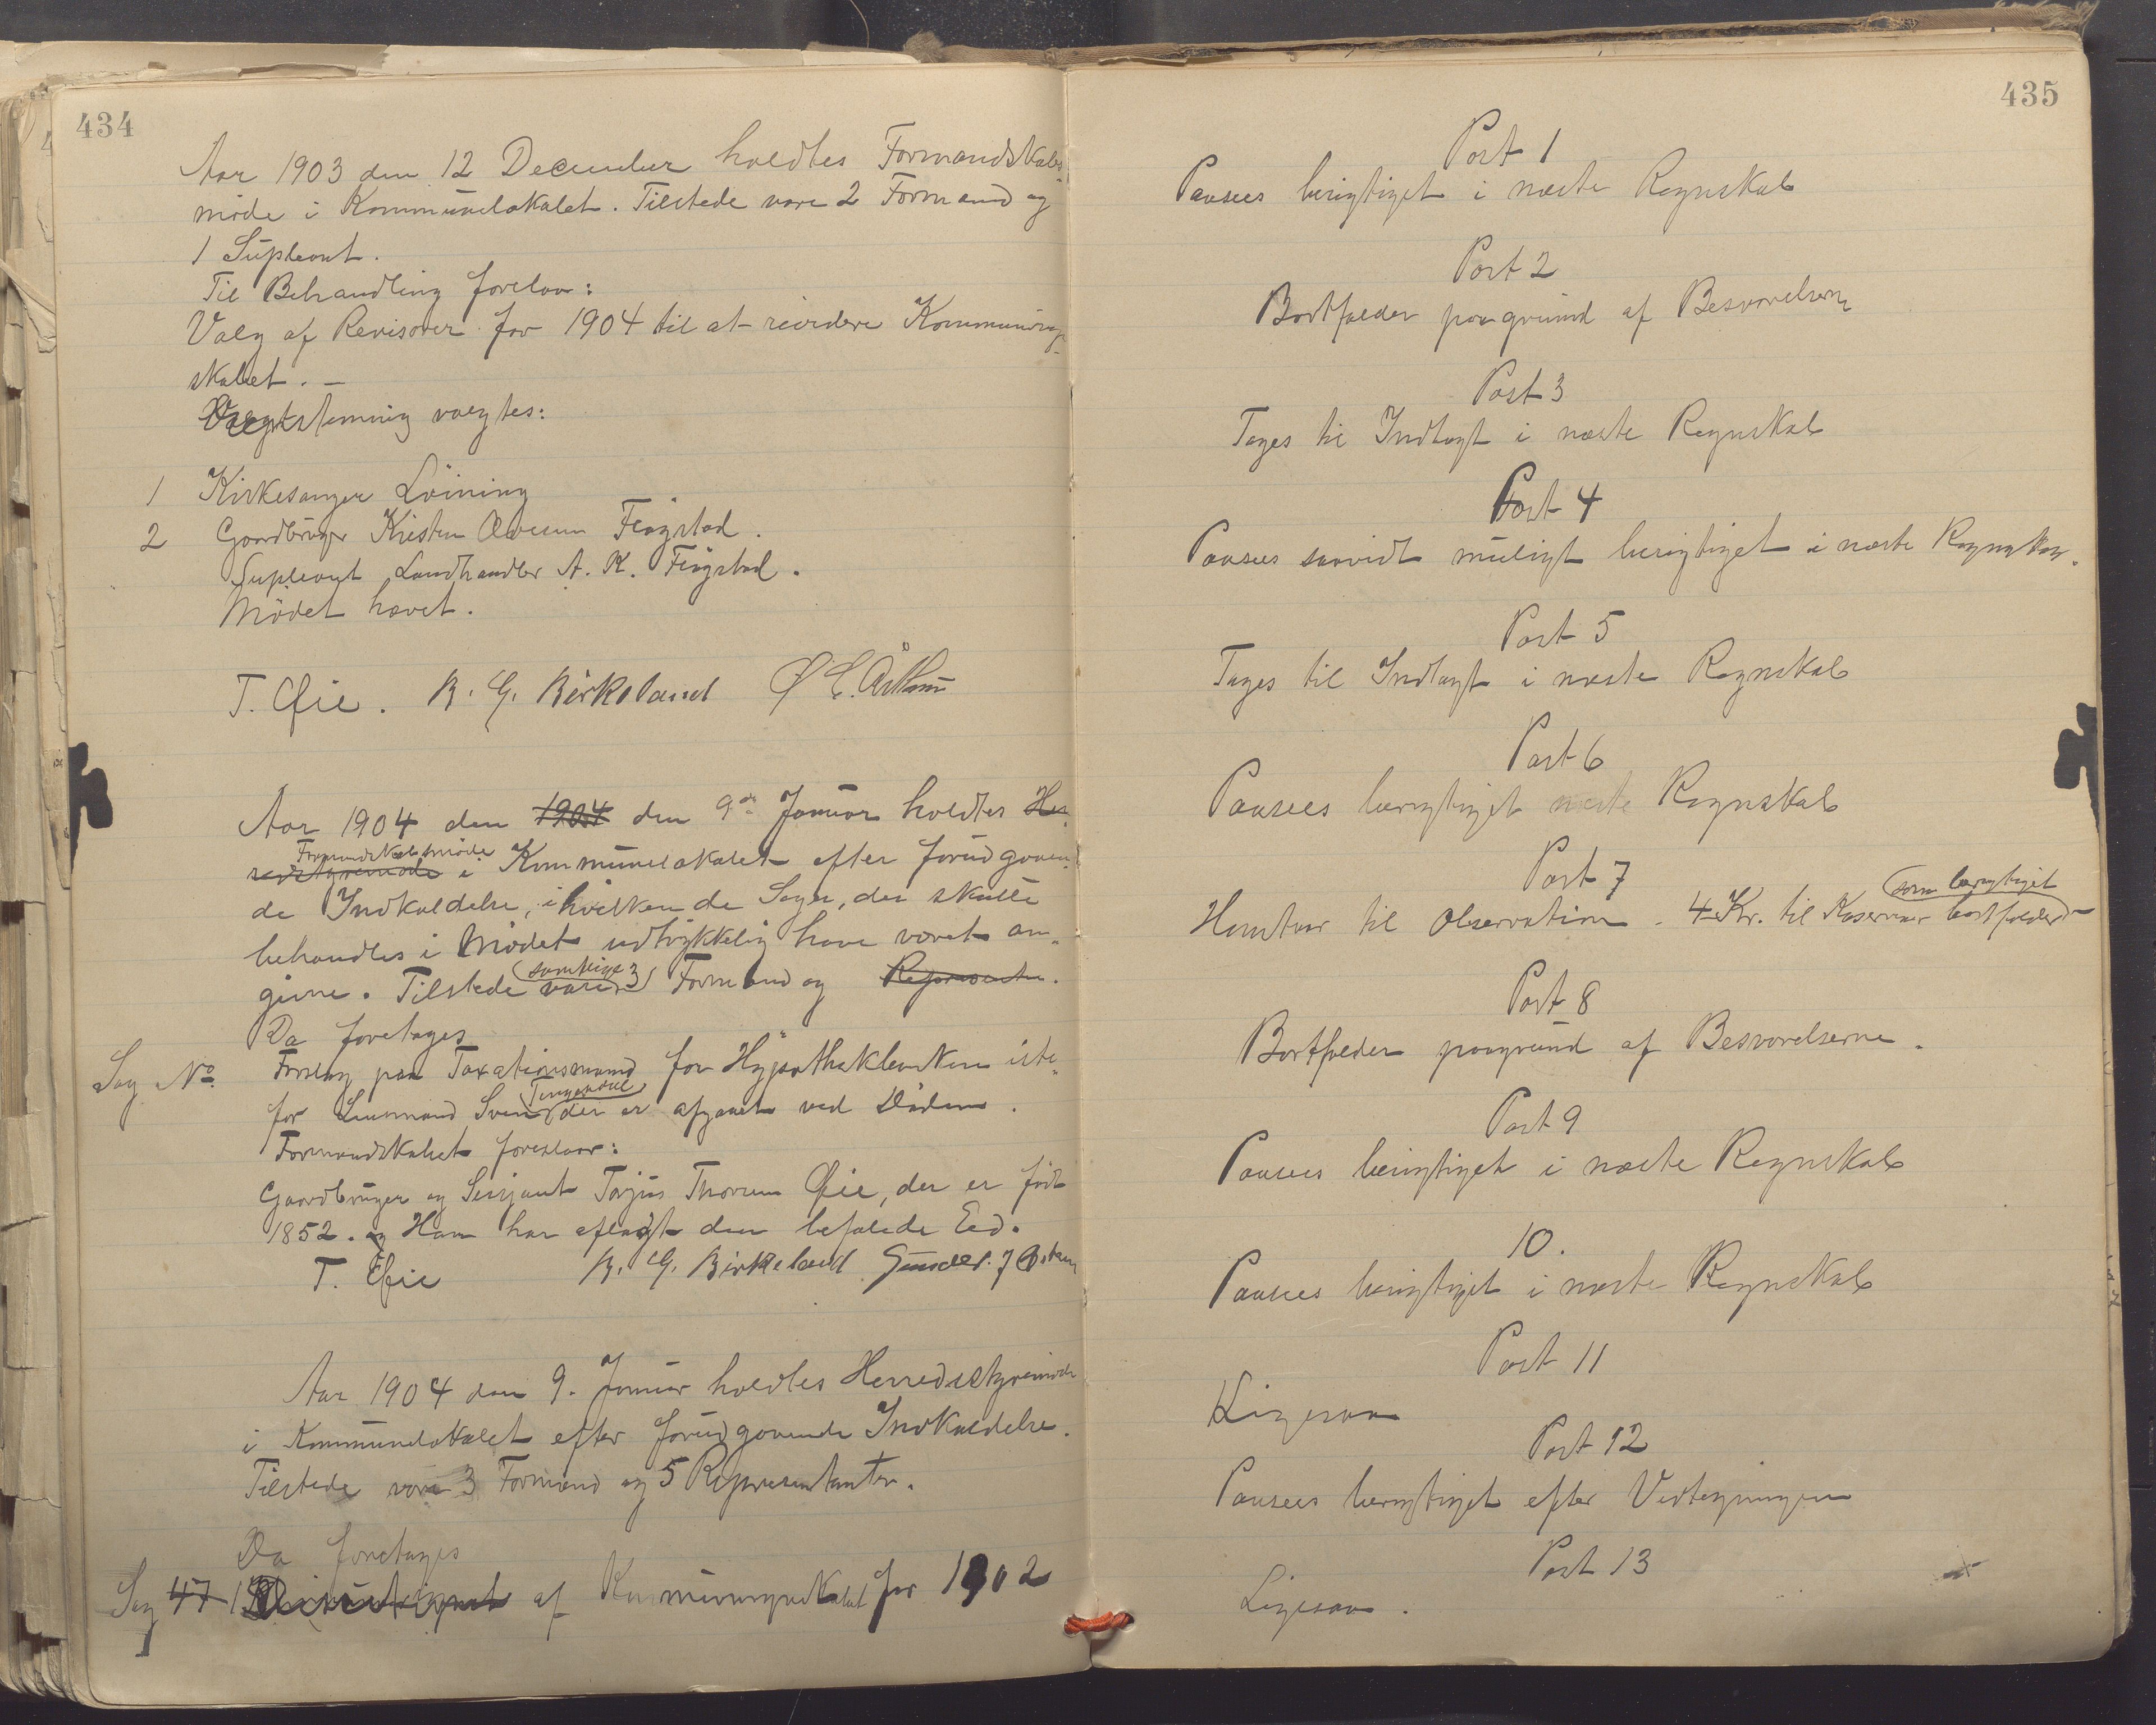 434
Aar 1903 den 12 December holdtes Formandskabs-
møde i Kommunelokalet. Tilstede vare 2 Formænd og
1 Supleant.
Til Behandling forelaa:
Valg af Revisorer for 1904 til at revidere Kommuneregn-
skabet. -
valgtes:
1 Kirkesanger Løining
2 Gaardbruger Kristen Fiøgstad.
Supleant Landhandler A. K. Fiøgstad.
Mødet hævet.
T. Øie. B. G. Birkeland
Aar 1904 den 1904 den 9de Januar holdtes Her-
redsstyremøde Formandskabsmøde i Kommunelokalet efter forudgaaen-
de Indkaldelse, i hvilken de Sager, der skulle
behandles i Mødet udtrykkelig have været an-
givne. Tilstede vare samtlige 3 Formænd og Representa.
Da foretages
Sag No. Forslag paa Taxationsmand for Hypothekbanken iste-
for Lensmand Svend der er afgaaet ved Døden.
Formandskabet foreslaar:
Gaardbruger og Sersjant Torjus Thorsen Øie, der er født
1852. og Han har aflagt den befalede Eed.
T. Øie B. G. Birkeland Gunder J
Aar 1904 den 9. Januar holdtes Herredsstyremøde
i Kommunelokalet efter forudgaaende Indkaldelse.
Tilstede vare 3 Formænd og 5 Representanter.
Da foretages
Sag 47 1 af Kommuneregnskabet for 1902
435
Post 1
Paasees berigtiget i næste Regnskab
Post 2
Bortfalder paagrund af Besvarelsen
Post 3
Tages til Indtægt i næste Regnskab
Post 4
Paasees saavidt muligt berigtiget i næste Regnskab.
Post 5
Tages til Indtægt i næste Regnskab
Post 6
Paasees berigtiget næste Regnskab
Post 7
Henstaar til Observation. 4 Kr. til Kaserner som berigtiget bortfalder
Post 8
Bortfalder paagrund af Besvarelserne.
Post 9
Paasees berigtiget i næste Regnskab
10.
Paasees berigtiget i næste Regnskab
Post 11
Ligesaa
Post 12
Paasees berigtiget efter Vedtegningen
Post 13
Ligesaa.